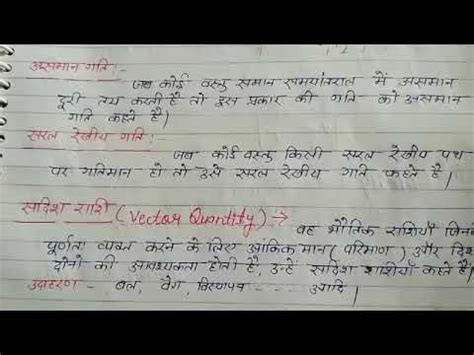 असमान गति :-
जब कोई वस्तु समान समयांतराल में असमान
दूरी तय करती है तो इस प्रकार की गति को असमान
गति कहते है।
सरल रेखीय गति:-
जब कोई वस्तु किसी सरल रेखीय पथ
पर गतिमान हो तो उसे सरल रेखीय गति कहते है।
सदिश राशि (Vector Quantity) →
वह भौतिक राशियाँ जिनक
पूर्णता व्यक्त करने के लिए आंकिक मान (परिमाण) और दिश
दोनो की आवश्यकता होती है, उन्हें सदिश राशियाँ कहते है।
उदाहरण - बल, वेग, विस्थापन - - - - आदि।